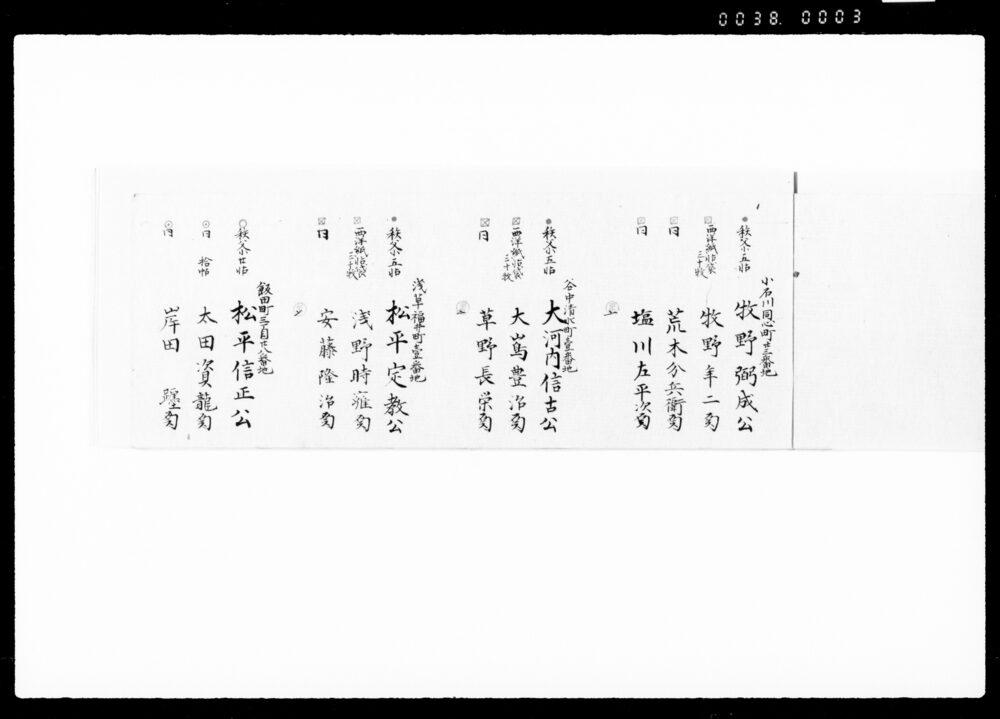 0038.0003
小石川同心町廿三番地
秩父小五帖
牧野弼成公
西洋紙状袋三十枚
牧野年二殿
同
荒木分兵衛殿
同
塩川左平次殿
谷中清水町壹番地
秩父小五帖
大河内信古公
西洋紙状袋三十枚
大嶌豊治殿
同
草野長栄殿
浅草福井町壹番地
秩父小五帖
松平定教公
西洋紙状袋三十枚
浅野時雍殿
同
安藤隆治殿
飯田町三丁目廿八番地
秩父小廿帖
松平信正公
同
拾帖
太田資龍殿
同
岸田
殿